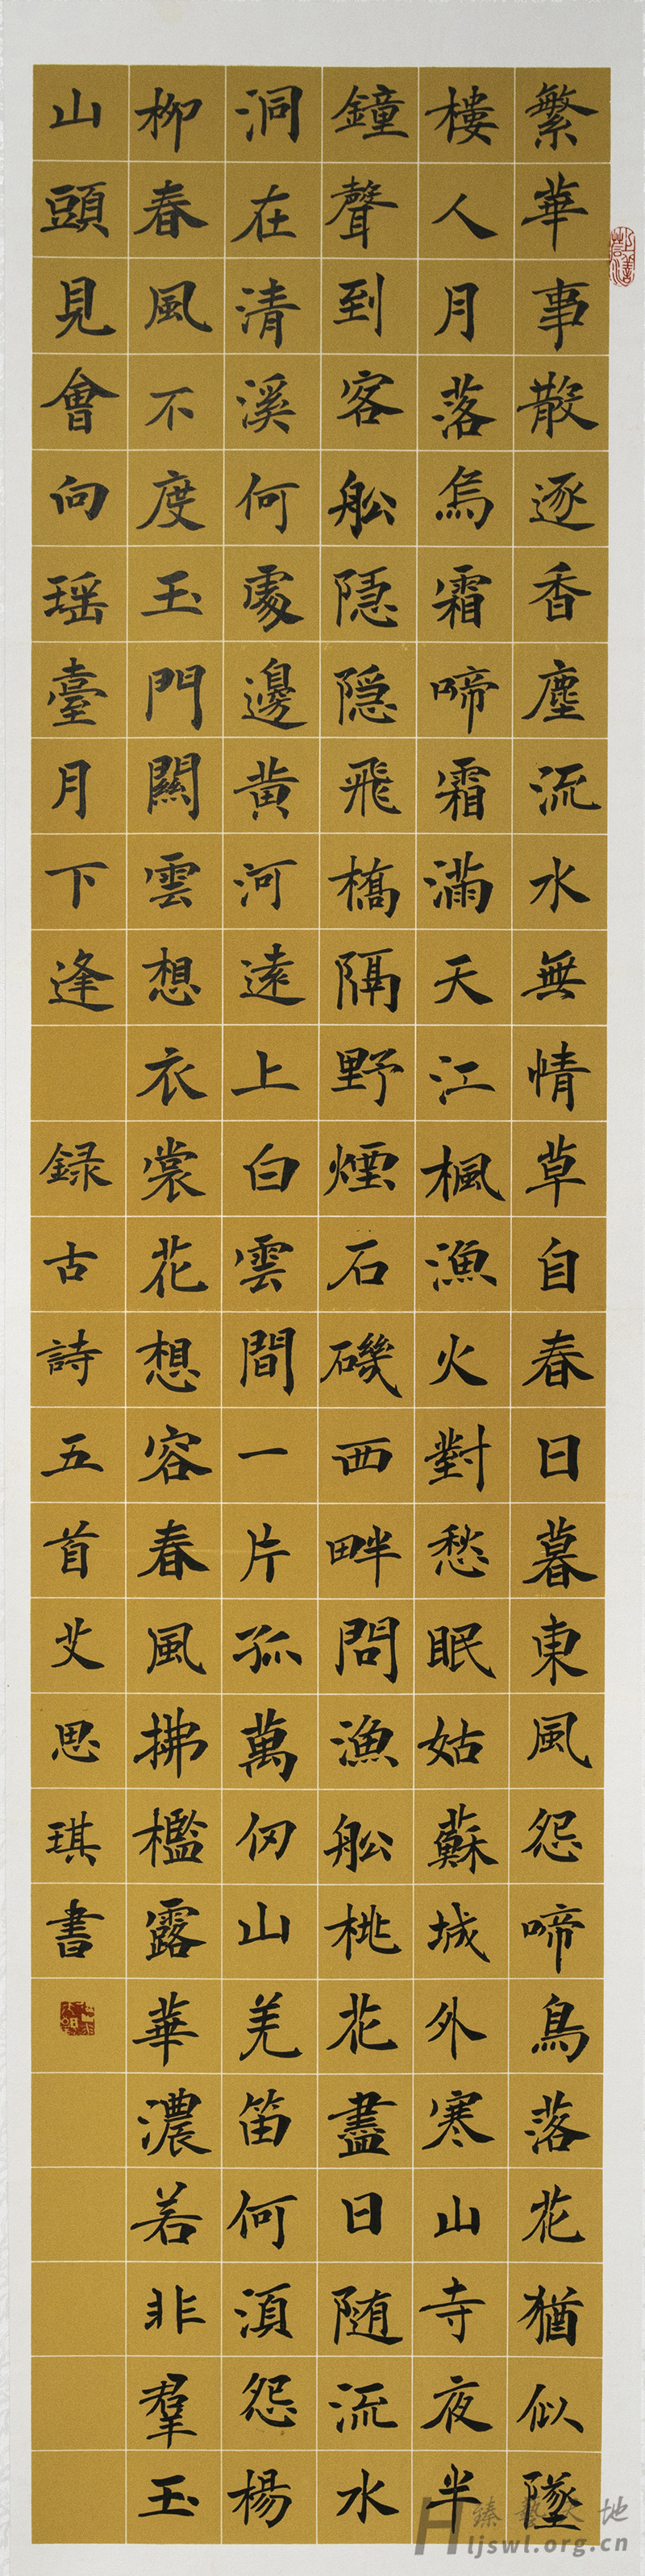 繁華事散逐香塵流水無情草自春日暮東風怨啼鳥落花猶似墜
樓人月落烏霜啼霜滿天江楓漁火對愁眠姑蘇城外寒山寺夜半
鐘聲到客舩隱隱飛橋隔野煙石磯西畔問漁舩桃花盡日随流水
洞在清溪何處邊黄河遠上白雲間一片孤萬仞山羌笛何須怨楊
柳春風不度玉門關雲想衣裳花想容春風拂檻露華濃若非羣玉
山頭見會向瑶臺月下逢 録古詩五首艾思琪書
臻藝天地
Hljswl.org.cn